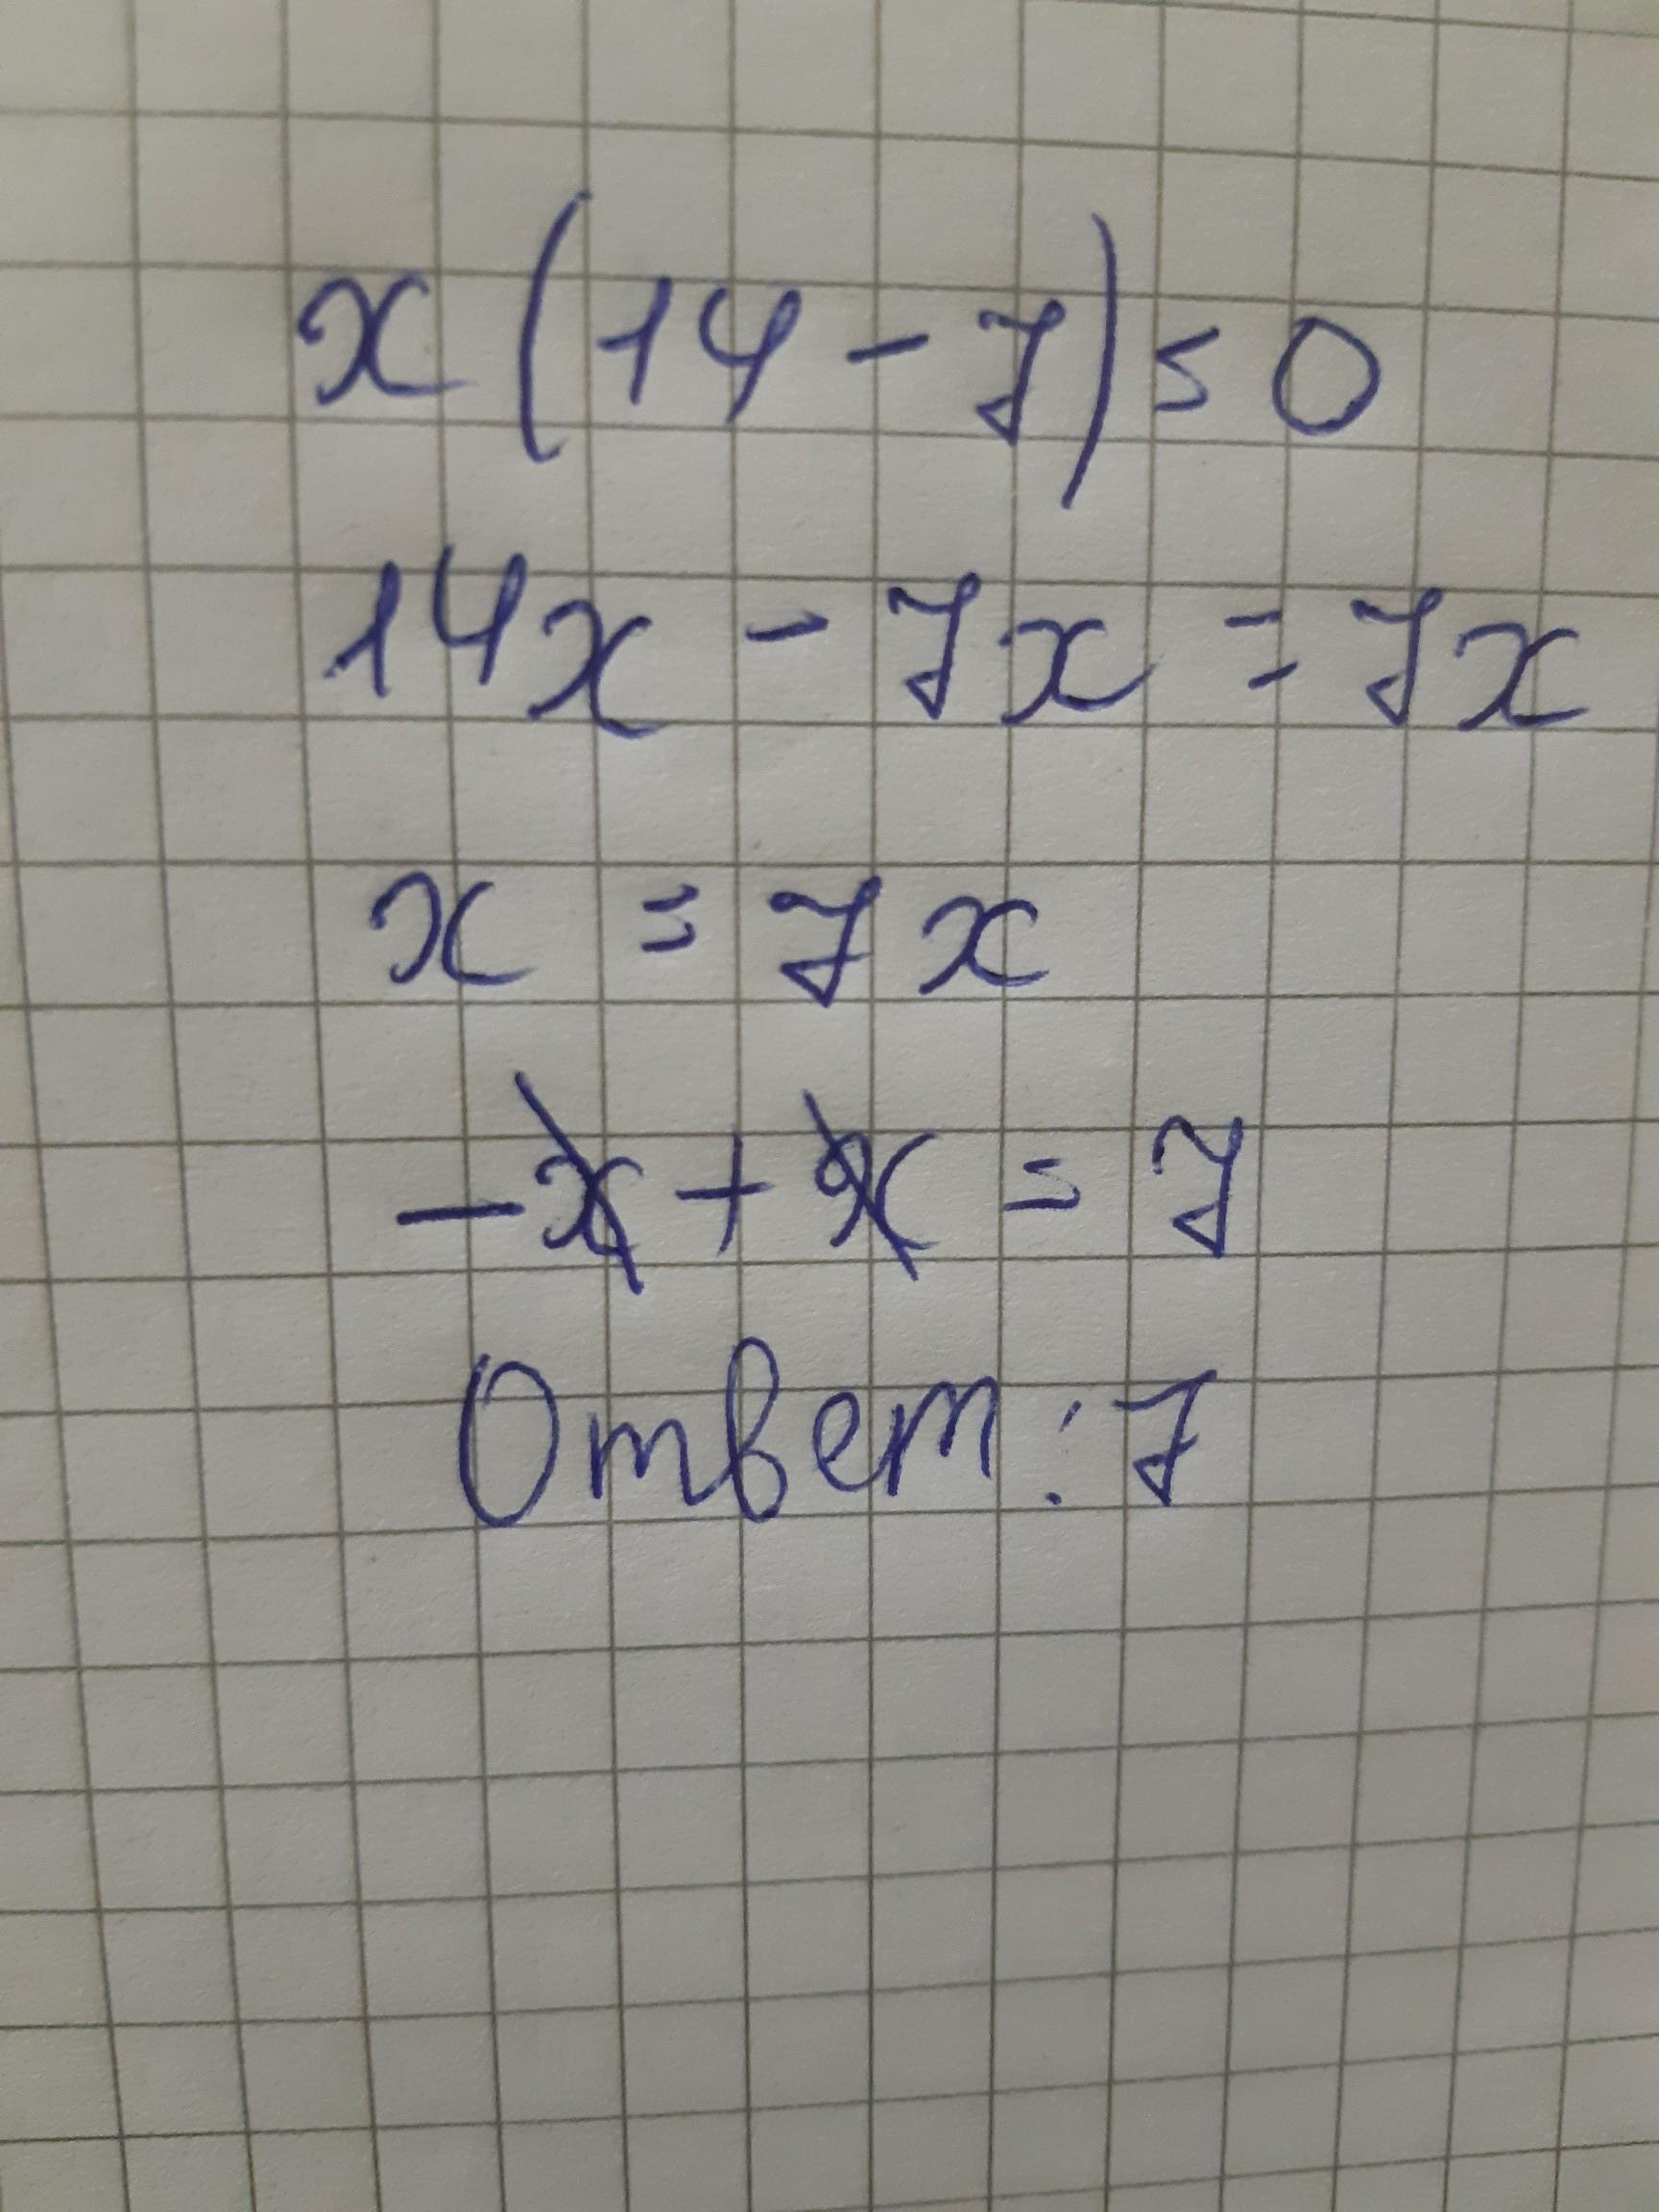 x(14-7)=0
14x - 7x = 7x
x = 7x
-x + x = 7
Ответ: 7